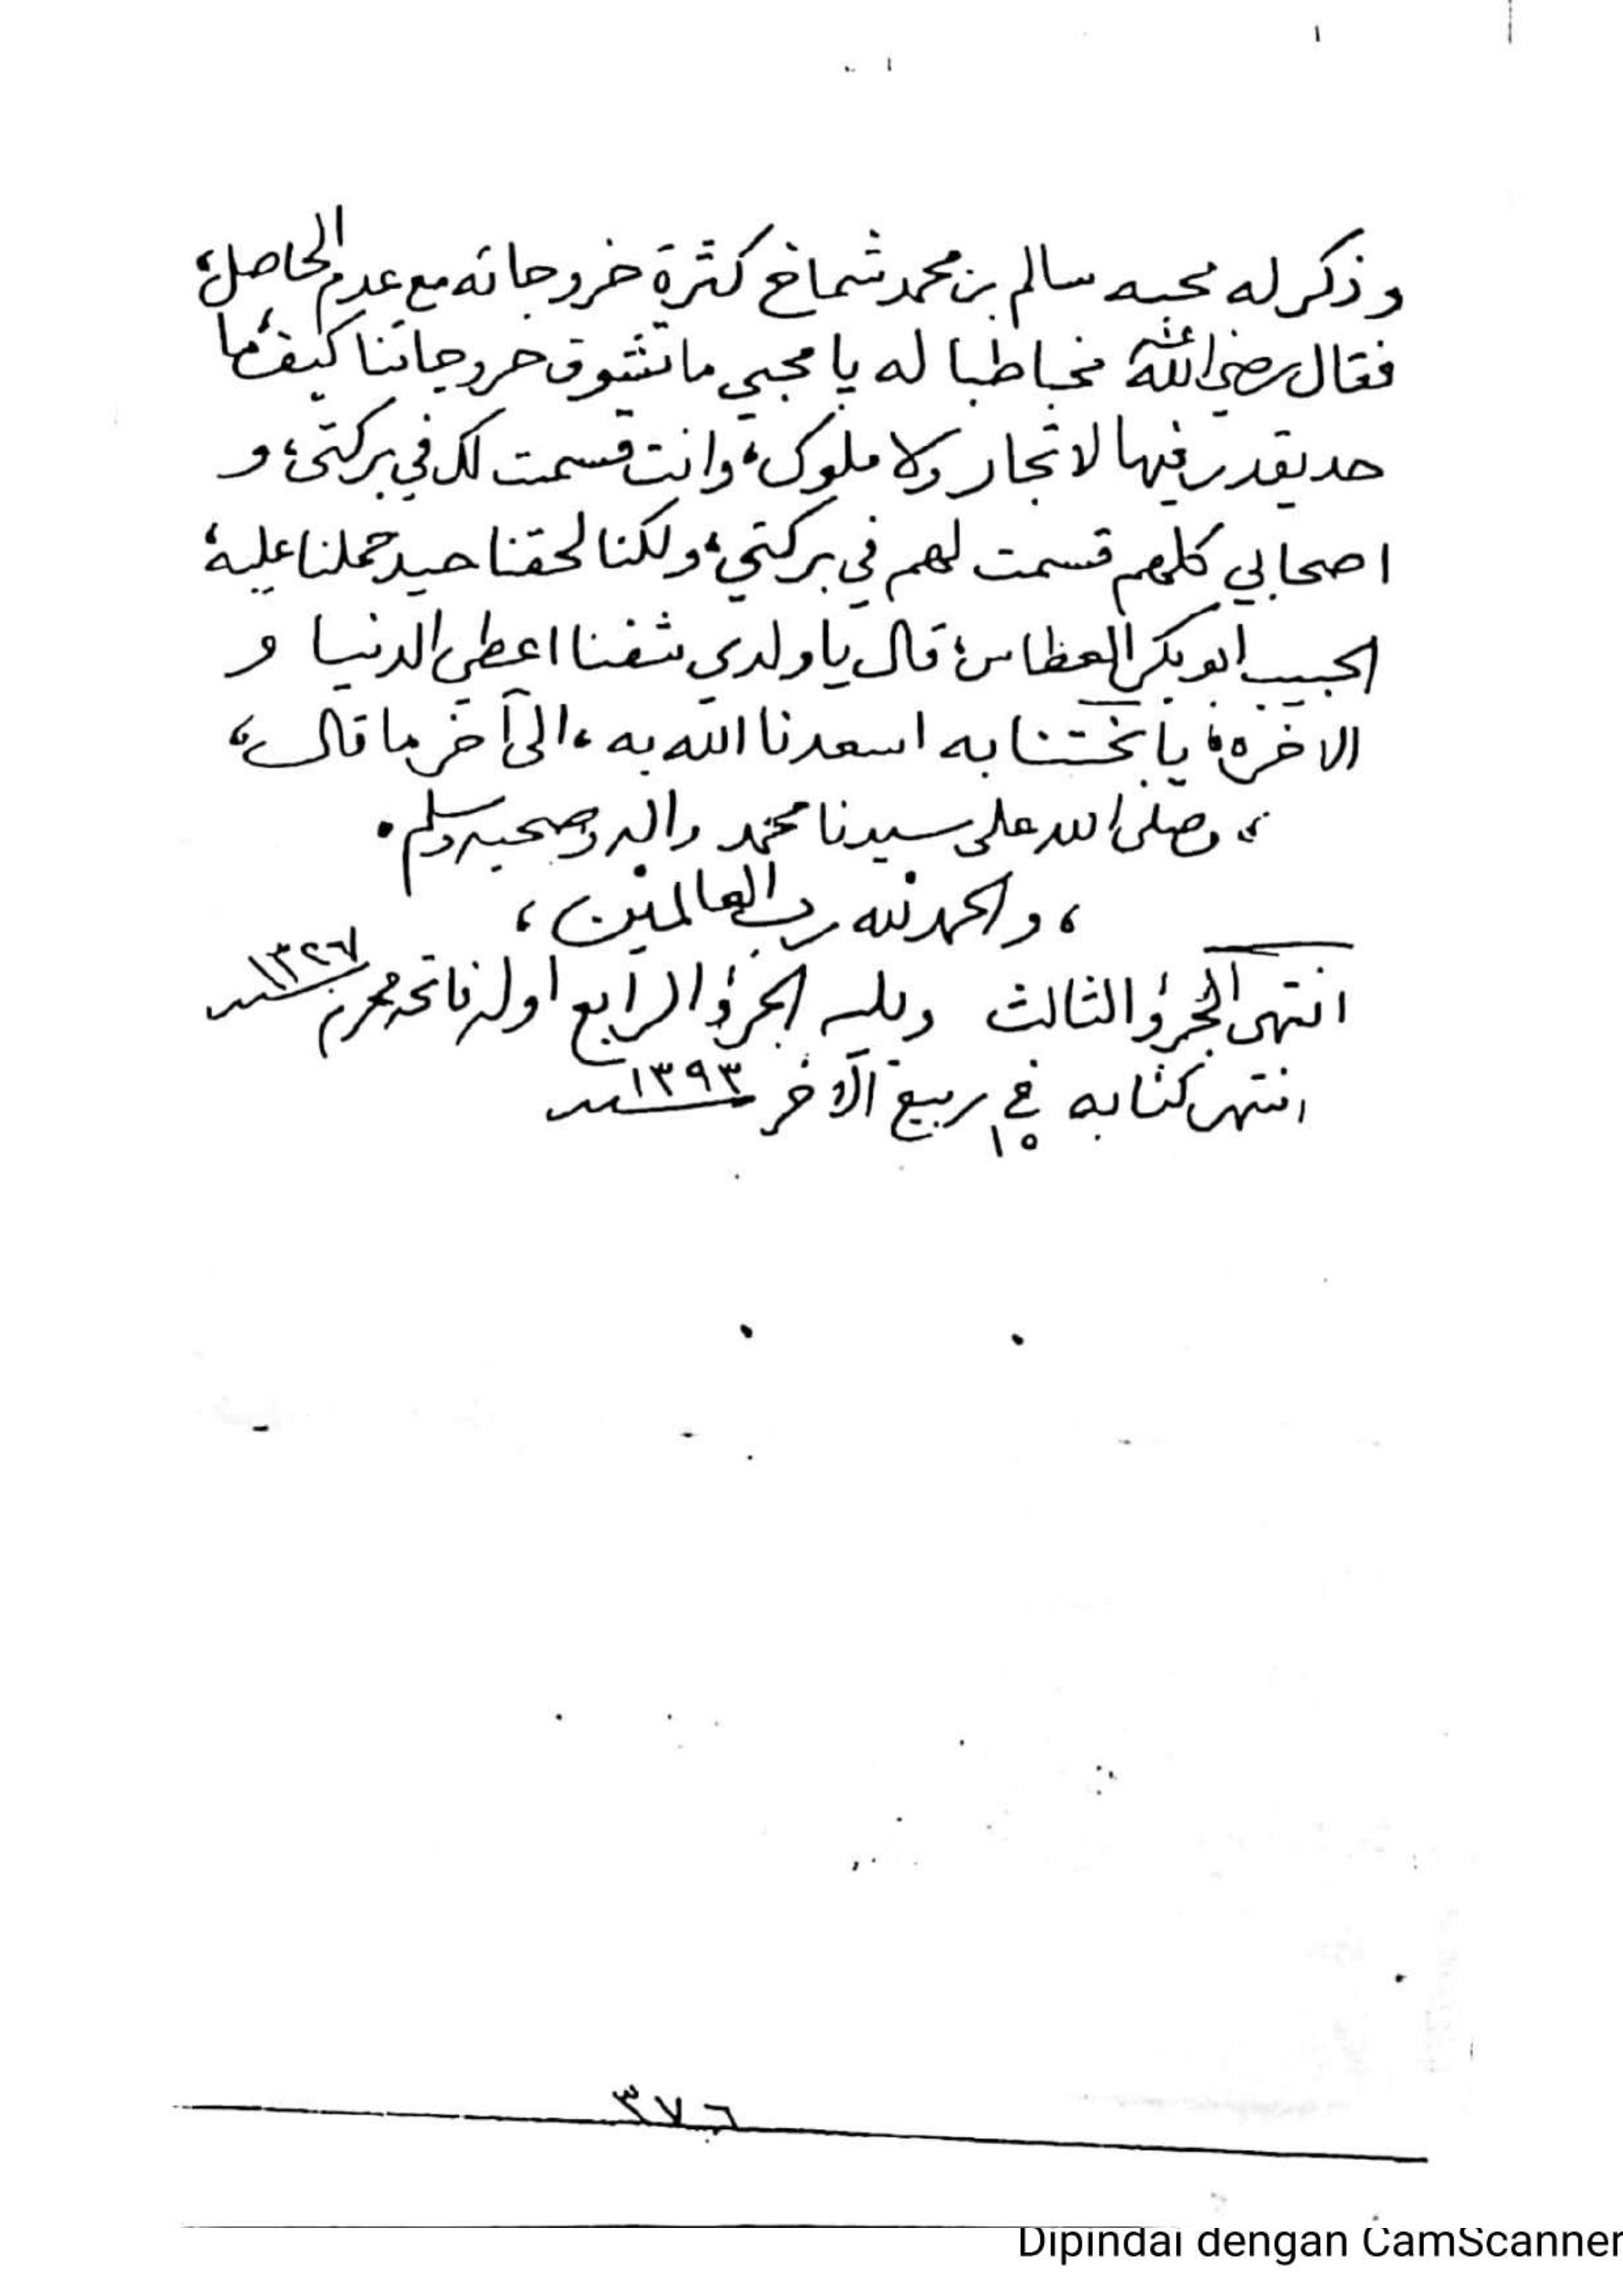 وذكر له محبه سالم بن محمد شماخ كثرة خروجاته مع عدم الحاصل،
فقال رضي الله عنه مخاطبا له يا محبي ما تشوق خروجاتنا كيف، ما
حد يقدر فيها لا تجار ولا ملوك، وانت قسمت لك في بركتي، و
اصحابي كلهم قسمت لهم في بركتي، ولكنا لحقنا حيد حملنا عليه،
الحبيب ابوبكر العطاس، قال يا ولدي شفنا اعطي الدنيا و
الاخره، يا بختنا به اسعدنا الله به، الى آخر ما قال،
، وصلى الله على سيدنا محمد واله وصحبه وسلم .
، والحمد لله رب العالمين ،
انتهى الجزؤ الثالث ويليه الجزؤ الرابع اوله فاتحه محرم ١٣٢٦
انتهى كتابه في ١٥ ربيع الآخر ١٣٩٣
٣٧٦
Dipindai dengan CamScanner